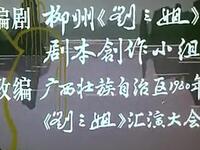 编剧 柳州《劉三姐》
剧本創作小组
改编 广西壮族自治区1960年
《劉三姐》汇演大会